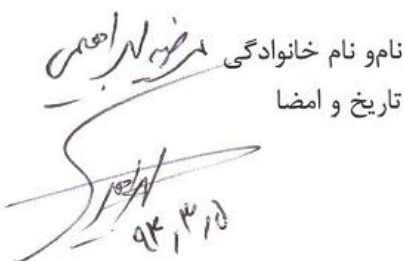 نام‌و نام خانوادگی مرضیه ابراهیمی
تاریخ و امضا
۹۴,۳,۵